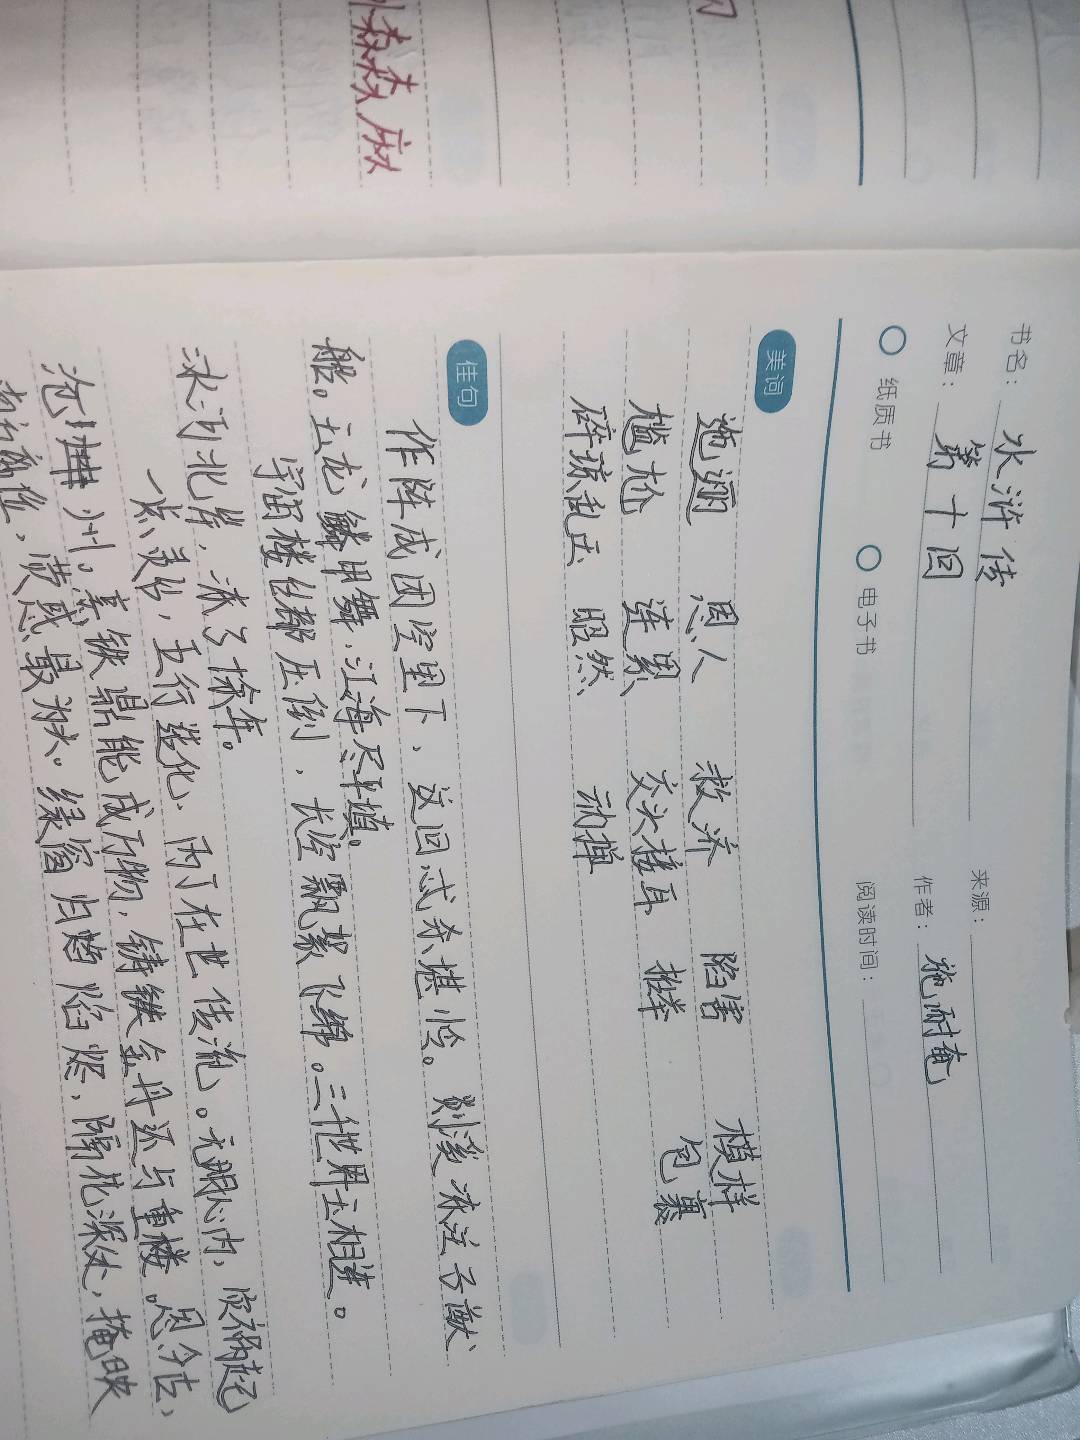 森森麻
书名： 水浒传 来源：
文章： 第十回 作者： 施耐庵
纸质书 电子书 阅读时间：
美词
迤逦 恩人 救济 陷害 模样
尴尬 连累 交头接耳 包裹
碎琼乱玉 昭然 动掸
佳句
作阵成团空里下，这回忒杀堪怜。剡溪冻注子猷
船。玉龙鳞甲舞，江海尽平填。
宇宙楼台都压倒，长空飘絮飞绵。三千世界玉相连。
冰河北岸，冻了十余年。
一点灵台，五行造化，丙丁在世传流。无明心内，灾祸起
沧州。烹铁鼎能成万物，铸金丹还与重楼。思今古，
南方离位，荧惑最为头。绿窗归焰烬，隔花深处，掩映